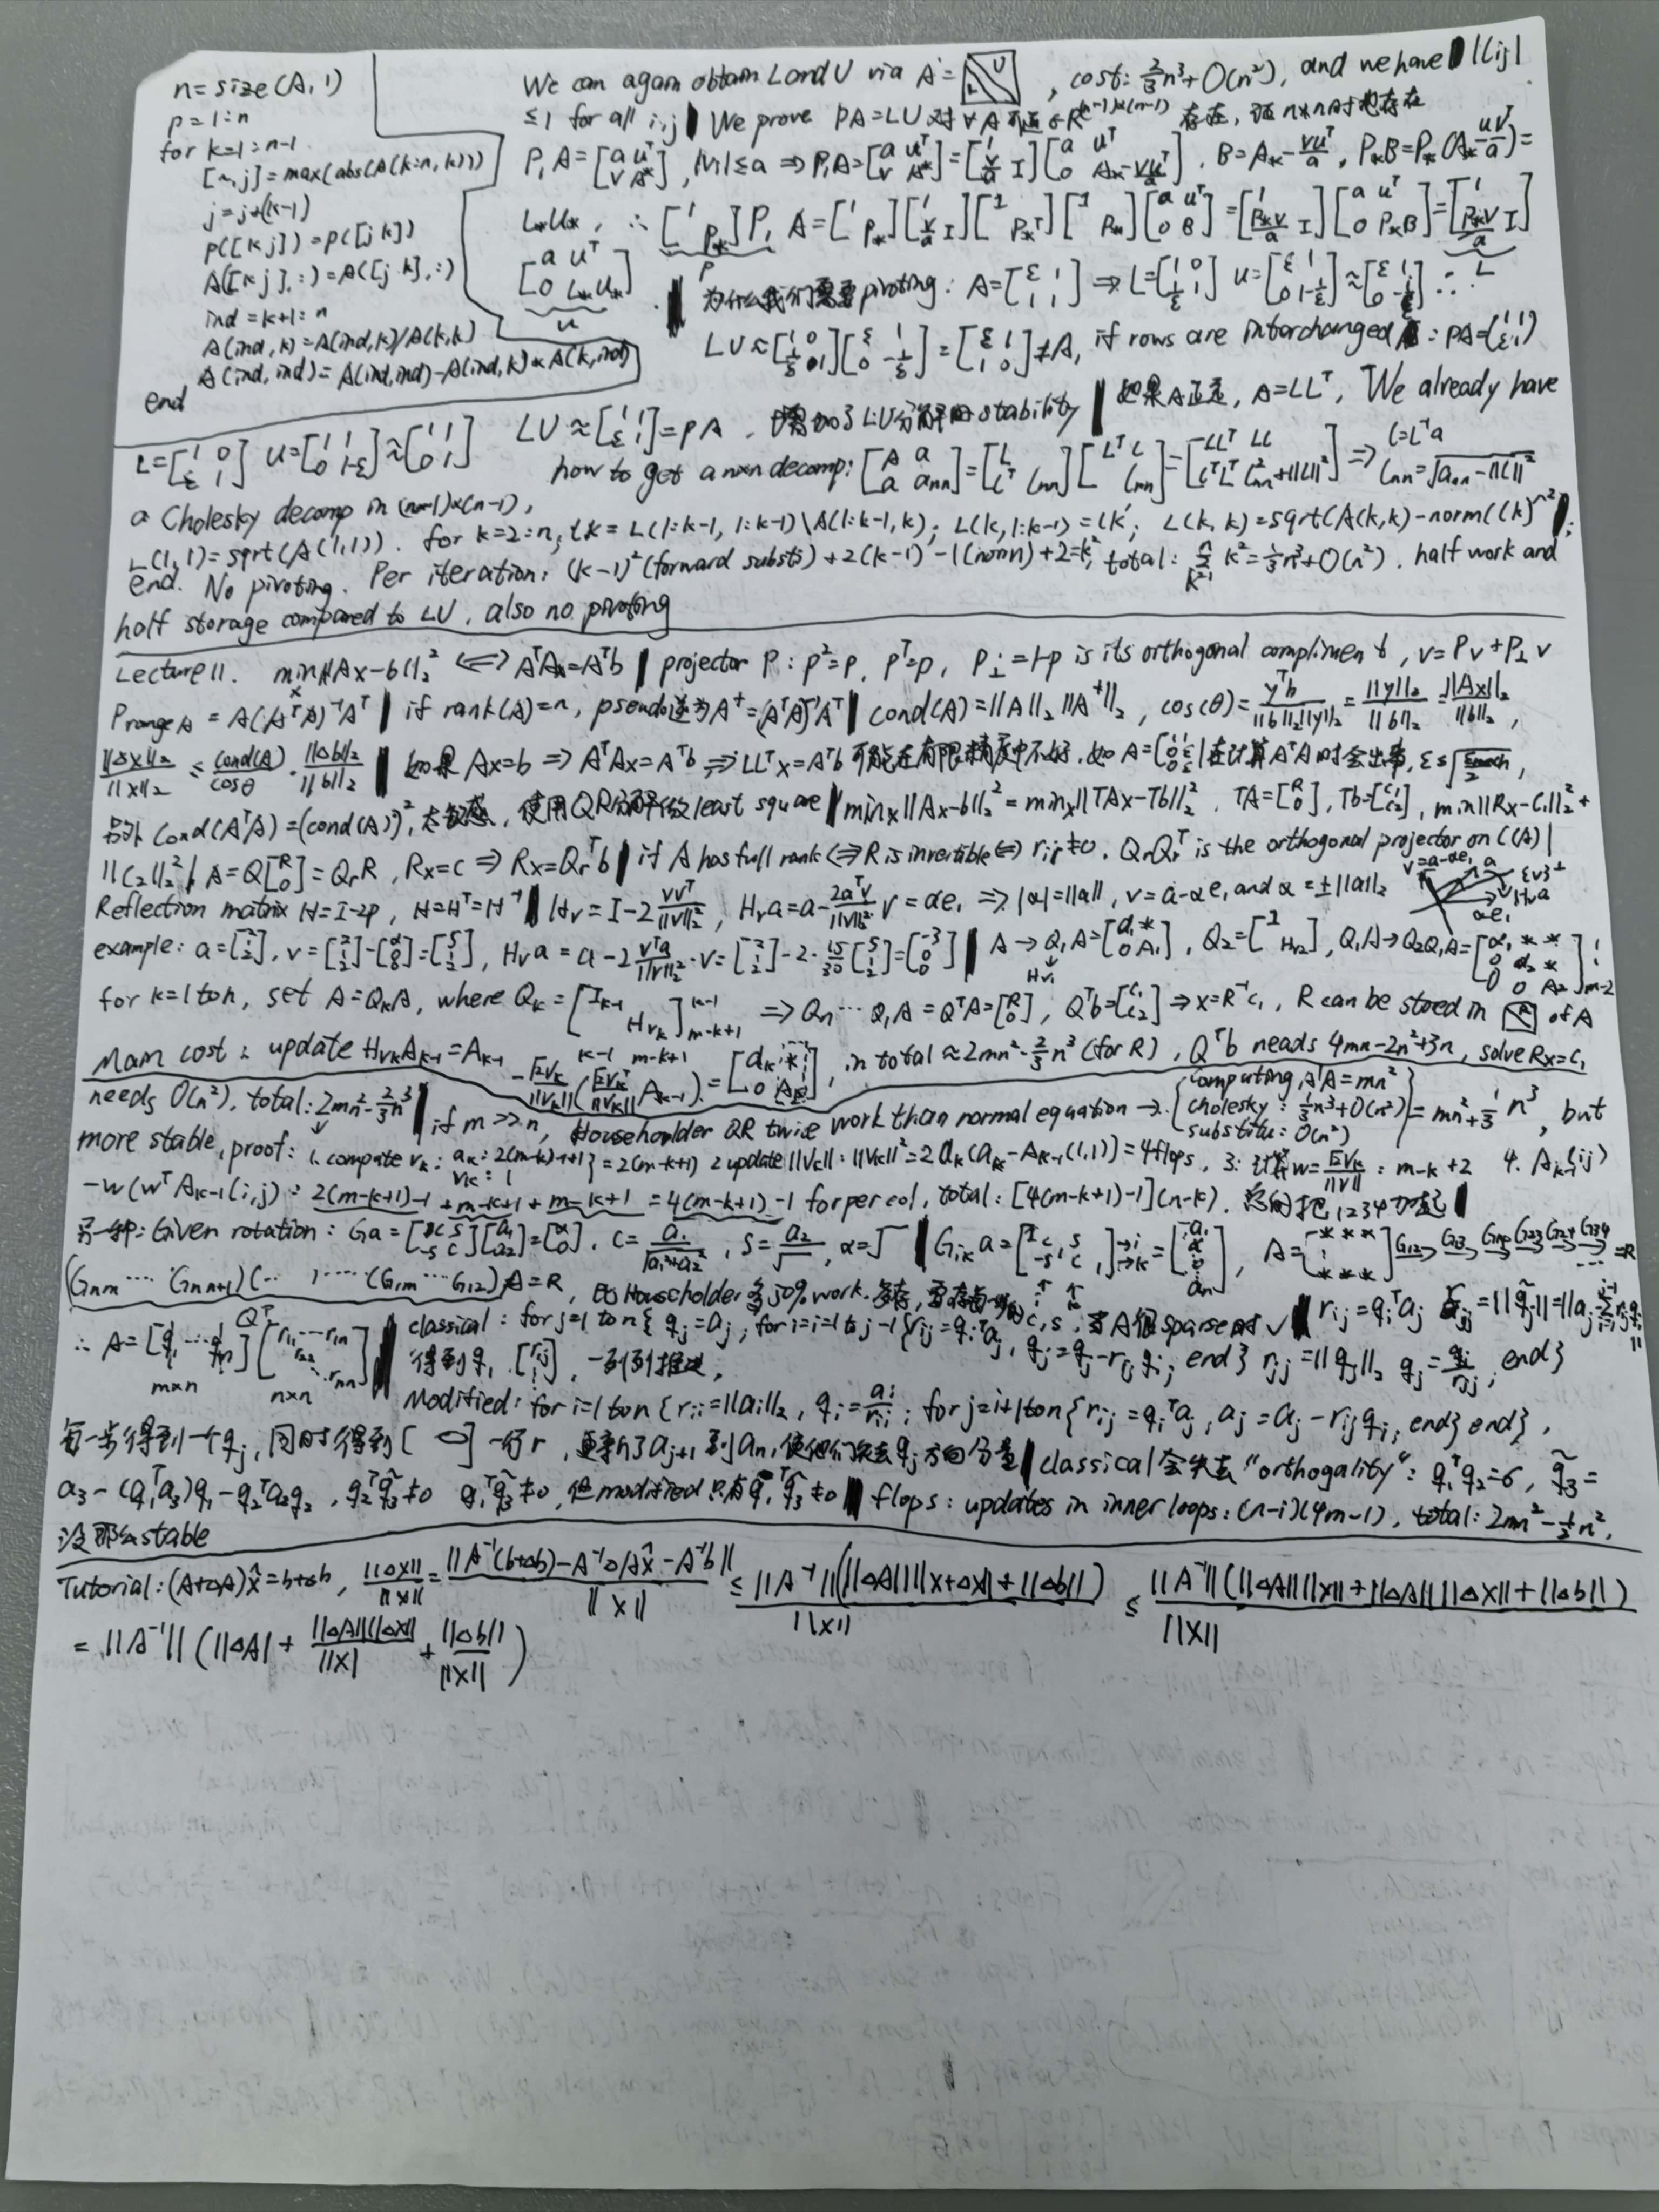 n = size(A,1)
p = 1:n
for k=1:n-1
[~,j] = max(abs(A(k:n,k)))
j=j+(k-1)
p([k j]) = p([j k])
A([k j],:) = A([j k],:)
ind = k+1:n
A(ind,k) = A(ind,k)/A(k,k)
A(ind,ind) = A(ind,ind)-A(ind,k)*A(k,ind)
end
We can again obtain L and U via A = [L\U], cost: 2/3 n³+O(n²), and we have |lij|
≤1 for all i,j | We prove PA=LU 对 ∀ A ∈ R^(n-1)×(n-1) 存在, n×n时也存在
P₁A = [a uᵀ; v A*], |v|≤a ⇒ P₁A = [a uᵀ; v A*] = [1; v/a I][a uᵀ; 0 A*-vuᵀ/a], B = A*-vuᵀ/a, P*B = P*(A*-uvᵀ/a) =
L*U*, ∴ [1; P*]P₁A = [1; P*][1; v/a I][1; P*ᵀ][1; P*][a uᵀ; 0 B] = [1; P*v/a I][a uᵀ; 0 P*B] = [1; P*v/a I]
P L
[a uᵀ; 0 L*U*]
U
为什么我们需要pivoting: A=[ε 1; 1 1] ⇒ L=[1 0; 1/ε 1] U=[ε 1; 0 1-1/ε] ≈ [ε 1; 0 -1/ε] ∴
LU ≈ [1 0; 1/ε 1][ε 1; 0 -1/ε] = [ε 1; 1 0] ≠ A, if rows are interchanged : PA=[1 1; ε 1]
L=[1 0; ε 1] U=[1 1; 0 1-ε] ≈ [1 1; 0 1] LU ≈ [1 1; ε 1] = PA, 增加了LU分解的stability | 如果A正定, A=LLᵀ, We already have
a Cholesky decomp in (n-1)×(n-1), how to get a n×n decomp: [A a; a ann] = [L; lᵀ lnn][Lᵀ l; lnn] = [LLᵀ Ll; lᵀLᵀ lnn²+||l||²] ⇒ l=L⁻¹a lnn=√(ann-||l||²)
L(1,1)=sqrt(A(1,1)). for k=2:n; lk = L(1:k-1,1:k-1)\A(1:k-1,k); L(k,1:k-1)=lk'; L(k,k)=sqrt(A(k,k)-norm(lk)^2);
end. No pivoting. Per iteration: (k-1)²(forward substs)+2(k-1)-1(norm)+2=k², total: Σ k² = 1/3 n³+O(n²). half work and
half storage compared to LU, also no pivoting
Lecture 11. min||Ax-b||₂² ⟺ AᵀAx=Aᵀb | projector P: P²=P, Pᵀ=P, P⊥=I-P is its orthogonal compliment, v=Pv+P⊥v
P range A = A(AᵀA)⁻¹Aᵀ | if rank(A)=n, pseudo逆为A⁺=(AᵀA)⁻¹Aᵀ | cond(A)=||A||₂||A⁺||₂, cos(θ)=yᵀb/(||b||₂||y||₂)=||y||₂/||b||₂=||Ax||₂/||b||₂,
||Δx||₂/||x||₂ ≤ cond(A)/cosθ · ||Δb||₂/||b||₂ | 如果 Ax=b ⇒ AᵀAx=Aᵀb ⇒ LLᵀx=Aᵀb 可能在有限精度中不好, 如 A= 在计算AᵀA时会出事,
另外 Cond(AᵀA)=(cond(A))², 太敏感, 使用QR分解做least square | minx||Ax-b||₂² = minx||TAx-Tb||₂², TA=[R; 0], Tb=[c₁; c₂], min||Rx-c₁||₂²+
||c₂||₂² | A=Q[R; 0]=QrR, Rx=c ⇒ Rx=Qrᵀb | if A has full rank ⟺ R is invertible ⟺ rii≠0. QrQrᵀ is the orthogonal projector on C(A) |
Reflection matrix H=I-2P, H=Hᵀ=H⁻¹ | Hv=I-2 vvᵀ/||v||₂², Hva=a-2aᵀv/||v||₂² v=αe₁ ⇒ |α|=||a||, v=a-αe₁ and α=±||a||₂
v=a-αe₁ a {v}⊥ Hva αe₁
example: a=[2; 1; 2], v=[2; 1; 2]-[α; 0; 0]=[5; 1; 2], Hva=a-2 vᵀa/||v||₂²·v=[2; 1; 2]-2·15/30[5; 1; 2]=[-3; 0; 0] | A→Q₁A=[α₁ *; 0 A₁], Q₂=[1; Hv2], Q₁A→Q₂Q₁A=[α₁ * *; 0 α₂ *; 0 0 A₂] m-2
for k=1 to n, set A=QkA, where Qk=[Ik-1; Hvk] k-1 m-k+1 ⇒ Qn⋯Q₁A=QᵀA=[R; 0], Qᵀb=[c₁; c₂] ⇒ x=R⁻¹c₁, R can be stoed in [R] of A
Main cost: update HvkAk-1=Ak-1 - √2vk/||vk||(√2vkᵀ/||vk|| Ak-1)=[αk *; 0 Ak], in total ≈2mn²-2/3n³ (for R), Qᵀb needs 4mn-2n²+3n, solve Rx=c₁
needs O(n²). total: 2mn²-2/3n³ | if m>>n, Householder QR twice work than normal equation → {computing AᵀA=mn² cholesky: 1/3n³+O(n²) substitu: O(n²)} = mn²+1/3n³, but
more stable, proof: 1. compute vk: αk: 2(m-k)+1 vk: 1 }=2(m-k+1) 2 update||vk||: ||vk||²=2αk(αk-Ak-1(1,1))=4flops, 3: 计算w=√2vk/||v||: m-k+2 4. Ak-1(ij)
-w(wᵀAk-1(i,j): 2(m-k+1)-1+m-k+1+m-k+1=4(m-k+1)-1 for per col, total: [4(m-k+1)-1](n-k). 总的把1234加起
另一种: Given rotation: Ga=[c s; -s c][a₁; a₂]=[α; 0], c=a₁/√(a₁²+a₂²), s=a₂/√, α=√ | Gika=[I c s; -s c 1] →i →k =[a₁; α; 0; an], A=[* * *; ⋮; * * *] G12→ G13→ G1n→ G23→ G24→ G34→ ⋯ =R
(Gnm⋯Gnn+1)(⋯)⋯(G1m⋯G12)A=R, 比Householder多50% work. c,s, 当A很sparse时✓ | rij=qiᵀaj rjj=||q̃j||=||aj-Σrijqi||
Qᵀ
∴ A=[q₁⋯qn][r11⋯r1n; r22; rnn] m×n n×n | classical: for j=1 to n{qj=aj, for i=1 to j-1{rij=qiᵀaj, qj=qj-rijqi, end} rjj=||qj||₂ qj=qj/rjj, end}
得到q₁, [rij], 一列列推进,
Modified: for i=1 to n{rii=||ai||₂, qi=ai/rii; for j=i+1 to n{rij=qiᵀaj, aj=aj-rijqi, end} end},
每一步得到一个qj, 同时得到[ ]一行r, 更新了aj+1到an, 使他们失去qj方向分量 | classical会失去"orthogality": q₁ᵀq₂=σ, q̃₃=
a₃-(q₁ᵀa₃)q₁-q₂ᵀa₃q₂, q₂ᵀq̃₃≠0 q₁ᵀq̃₃≠0, 但modified只有q₁ᵀq̃₃≠0 | flops: updates in inner loops: (n-i)(4m-1), total: 2mn²-1/2n²,
没那么stable
Tutorial: (A+ΔA)x̂=b+Δb, ||Δx||/||x||=||A⁻¹(b+Δb)-A⁻¹ΔAx̂-A⁻¹b||/||x|| ≤ ||A⁻¹||(||ΔA||||x+Δx||+||Δb||)/||x|| ≤ ||A⁻¹||(||ΔA||||x||+||ΔA||||Δx||+||Δb||)/||x||
=||A⁻¹||(||ΔA|+||ΔA||||Δx||/||x|+||Δb||/||x||)